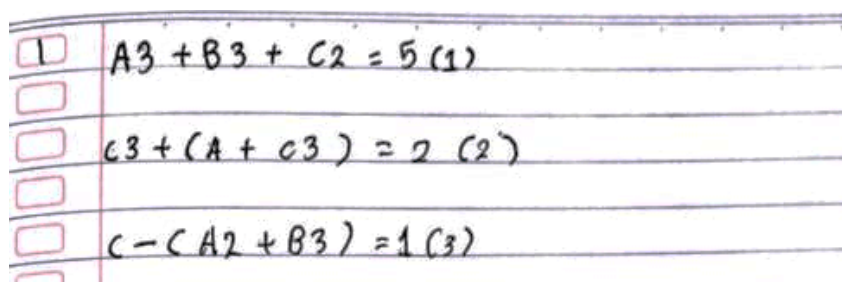 1 A3 + B3 + C2 = 5 (1)
c3 + (A + c3) = 2 (2)
c - (A2 + B3) = 1 (3)